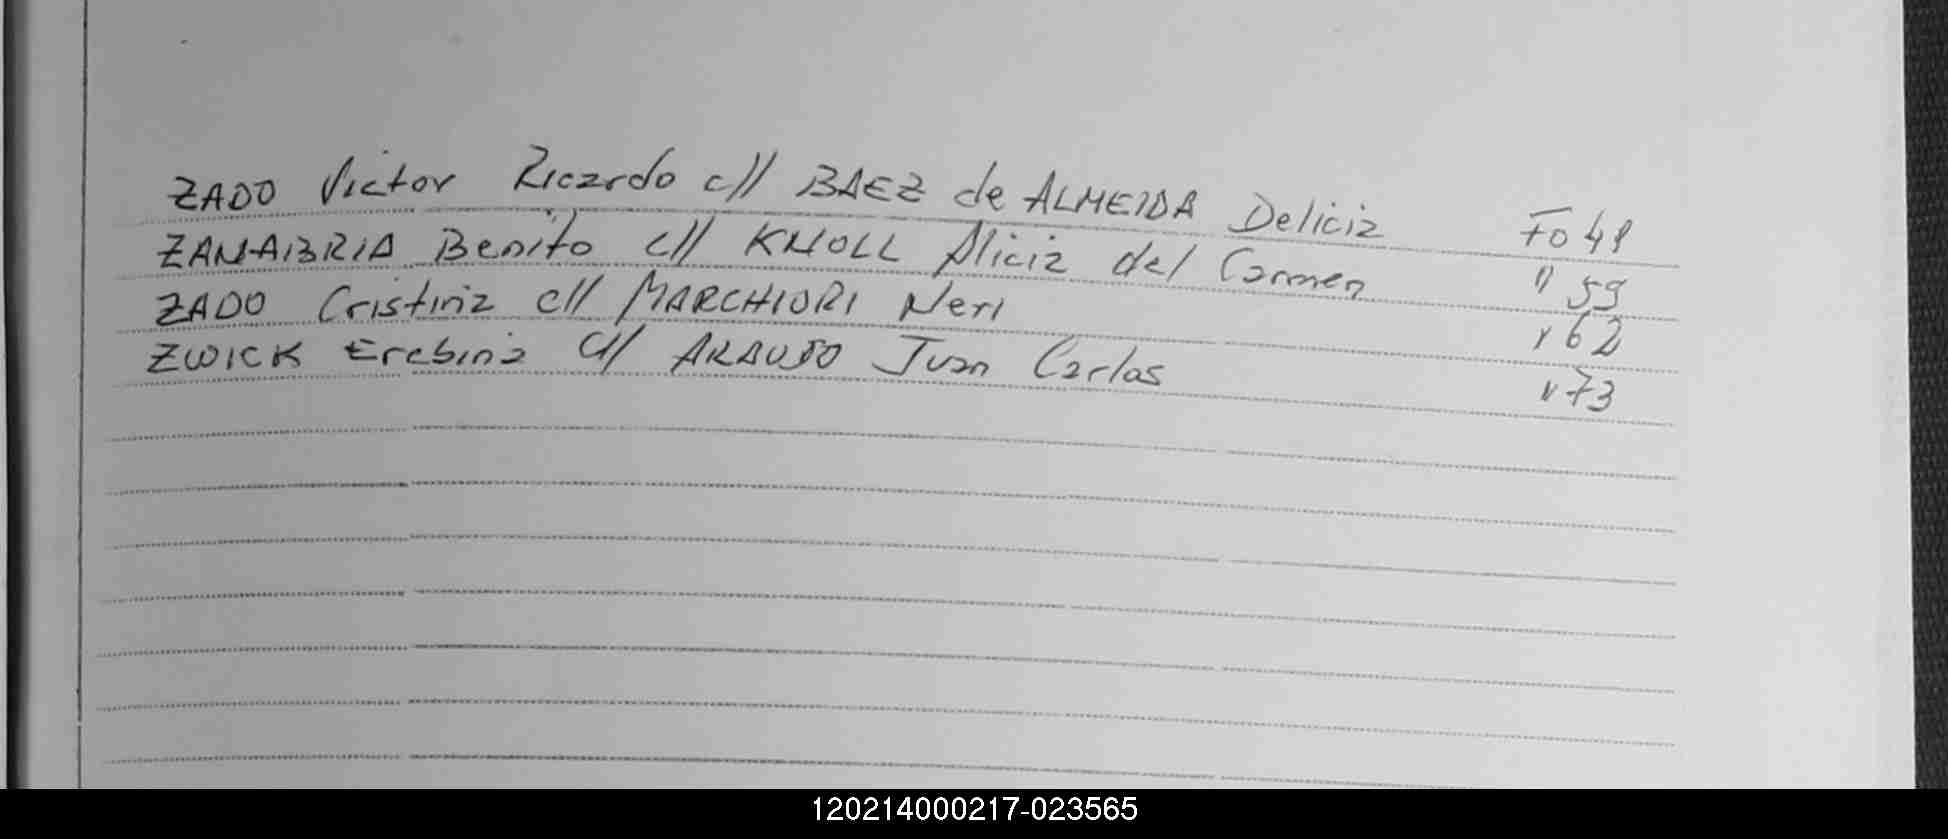 ZADO Victor Ricardo c// BAEZ de ALMEIDA Delicia Fo 48
ZANABRIA Benito c// KNOLL Alicia del Carmen " 59
ZADO Cristina c// MARCHIORI Neri " 62
ZWICK Erebina c// ARAUJO Juan Carlos " 73
120214000217-023565